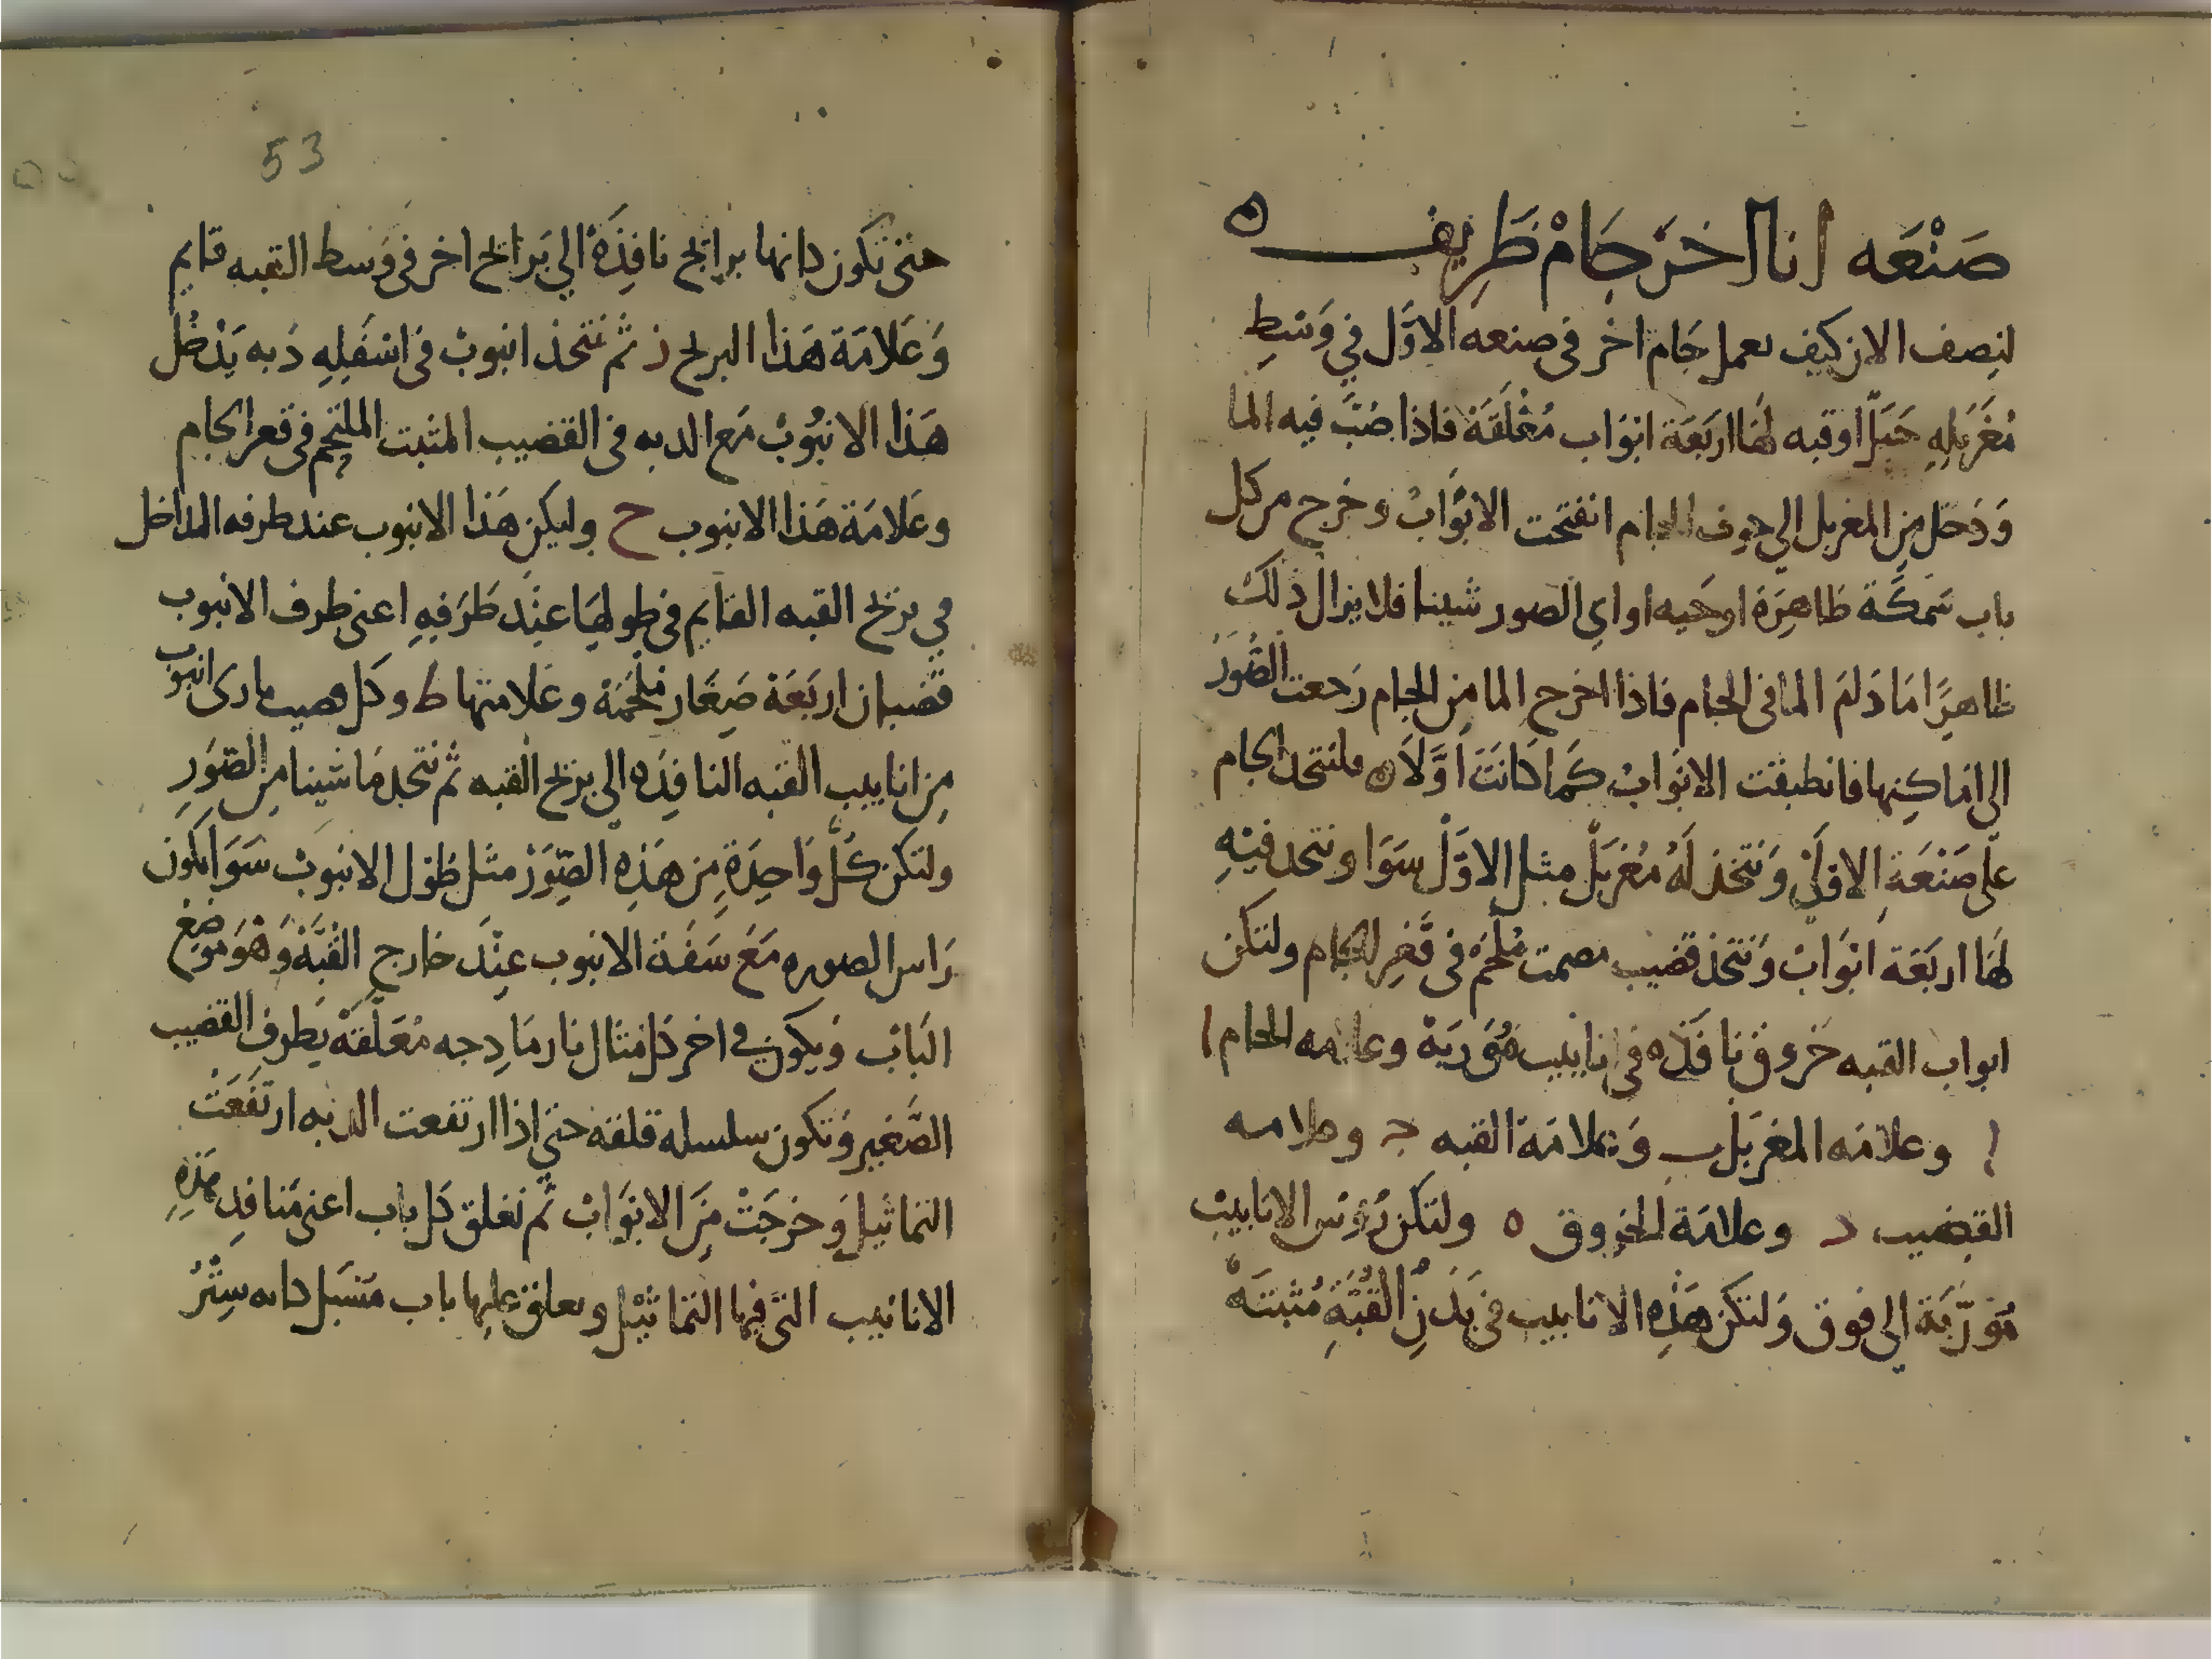 صَنْعَه انا اخَرَ جَامْ ظَرِيف
لنِصف الان كيف نعمل جَام اخر في صنعه الاوَّل في وَسَطِ
مُغَرْبلِهِ جَبَلًا او قبه لهَا اربَعَة ابْوَاب مُغْلَقَة فاذا صُبَّ فيه الما
وَدَخل مِن المغربل الي جوف الجام انفتحت الابْوَابْ وخرج من كل
باب سَمكَة ظاهِرَة او حَيه او اي الصور شينا فلا يزال ذلك
ظاهِرًا مَا دَامَ الما في الجام فاذا اخرج الما مِن الجام رَجعت الصُّوَرُ
الى امَاكِنِهَا فانطبقت الابْوَابْ كَمَا كَانَتَ اوَّلاً ه فلنتخذ الجام
علي صَنْعَةِ الاوَّلِ وَنَتّخذ لَهُ مُغَربَلْ مثل الاوَّل سَوَا ونتخذ فيْهِ
لهَا اربَعَة ابْوَابْ وَنَتخذ قضيب مصمت مُلْحَمْ في قَعْرِ الجام ولتكن
ابواب القبه خروق نافذه في انابيب مُوَربَة وعلامه الجام ا
ا وعلامَه المغربَل ب وَعلامَة القبه ج وعلامه
القضيب د وعلامَة الخروق ه ولتكن رُؤس الانابيبْ
مُوَرَّبَة الى فوق وَلتكن هَذِهِ الانابيب في بَدَنِ القُبَّةِ مُثبتَةً
53
حتى تكون كانها برابخ نافِذَة الي بَرابخ اخر في وَسط القبه قايم
وَعَلامَة هَذا البربخ ز ثم نتخذ انبوبْ في اسْفَلِهِ دَبه يَدْخُل
هَذا الانبُوبْ مَع الدبه في القضيب المثبت الملتحم في قعر الجام
وعَلامَة هَذا الانبوب ح وليكن هَذا الانبوب عند طرفه الداخل
في بربخ القبه القايم في طولهَا عنْد طَرَفيهِ اعنى طرف الانبوب
قضبان اربَعَة صِغَار مُلْحَمَة وعَلامتها ط وكل قضيب يحاذى انبوب
مِن انابيب القبه النافِذَه الى بربخ القبه ثم نتخذ مَا شينا مِن الصّوَرِ
ولتكن كُلُّ وَاحِدَةٍ مِن هَذِهِ الصِّوَرْ مثل طوْل الانبوبْ سَوَا يكون
رَاس الصوره مَعَ سَفَة الانبوب عِنْدَ خارج القُبَّةْ وَهْوَ مَوضِع
البَابْ وَيكون في اخر كل مثال نارمَادِجه مُعَلَّقَة بَطرف القضيب
الصَّغير وَتكون سلسله قلقه حتي اذا ارتفعت الدبه ارتَفَعَتْ
التماثيل وَخرجَتْ مِنَ الابْوَابْ ثم نعلق كل باب اعنى مَنافِد هَذِهِ
الانابيب التى فيها التماثيْل ونعلق عليها باب مَسْبَل كانه سِتْرُ